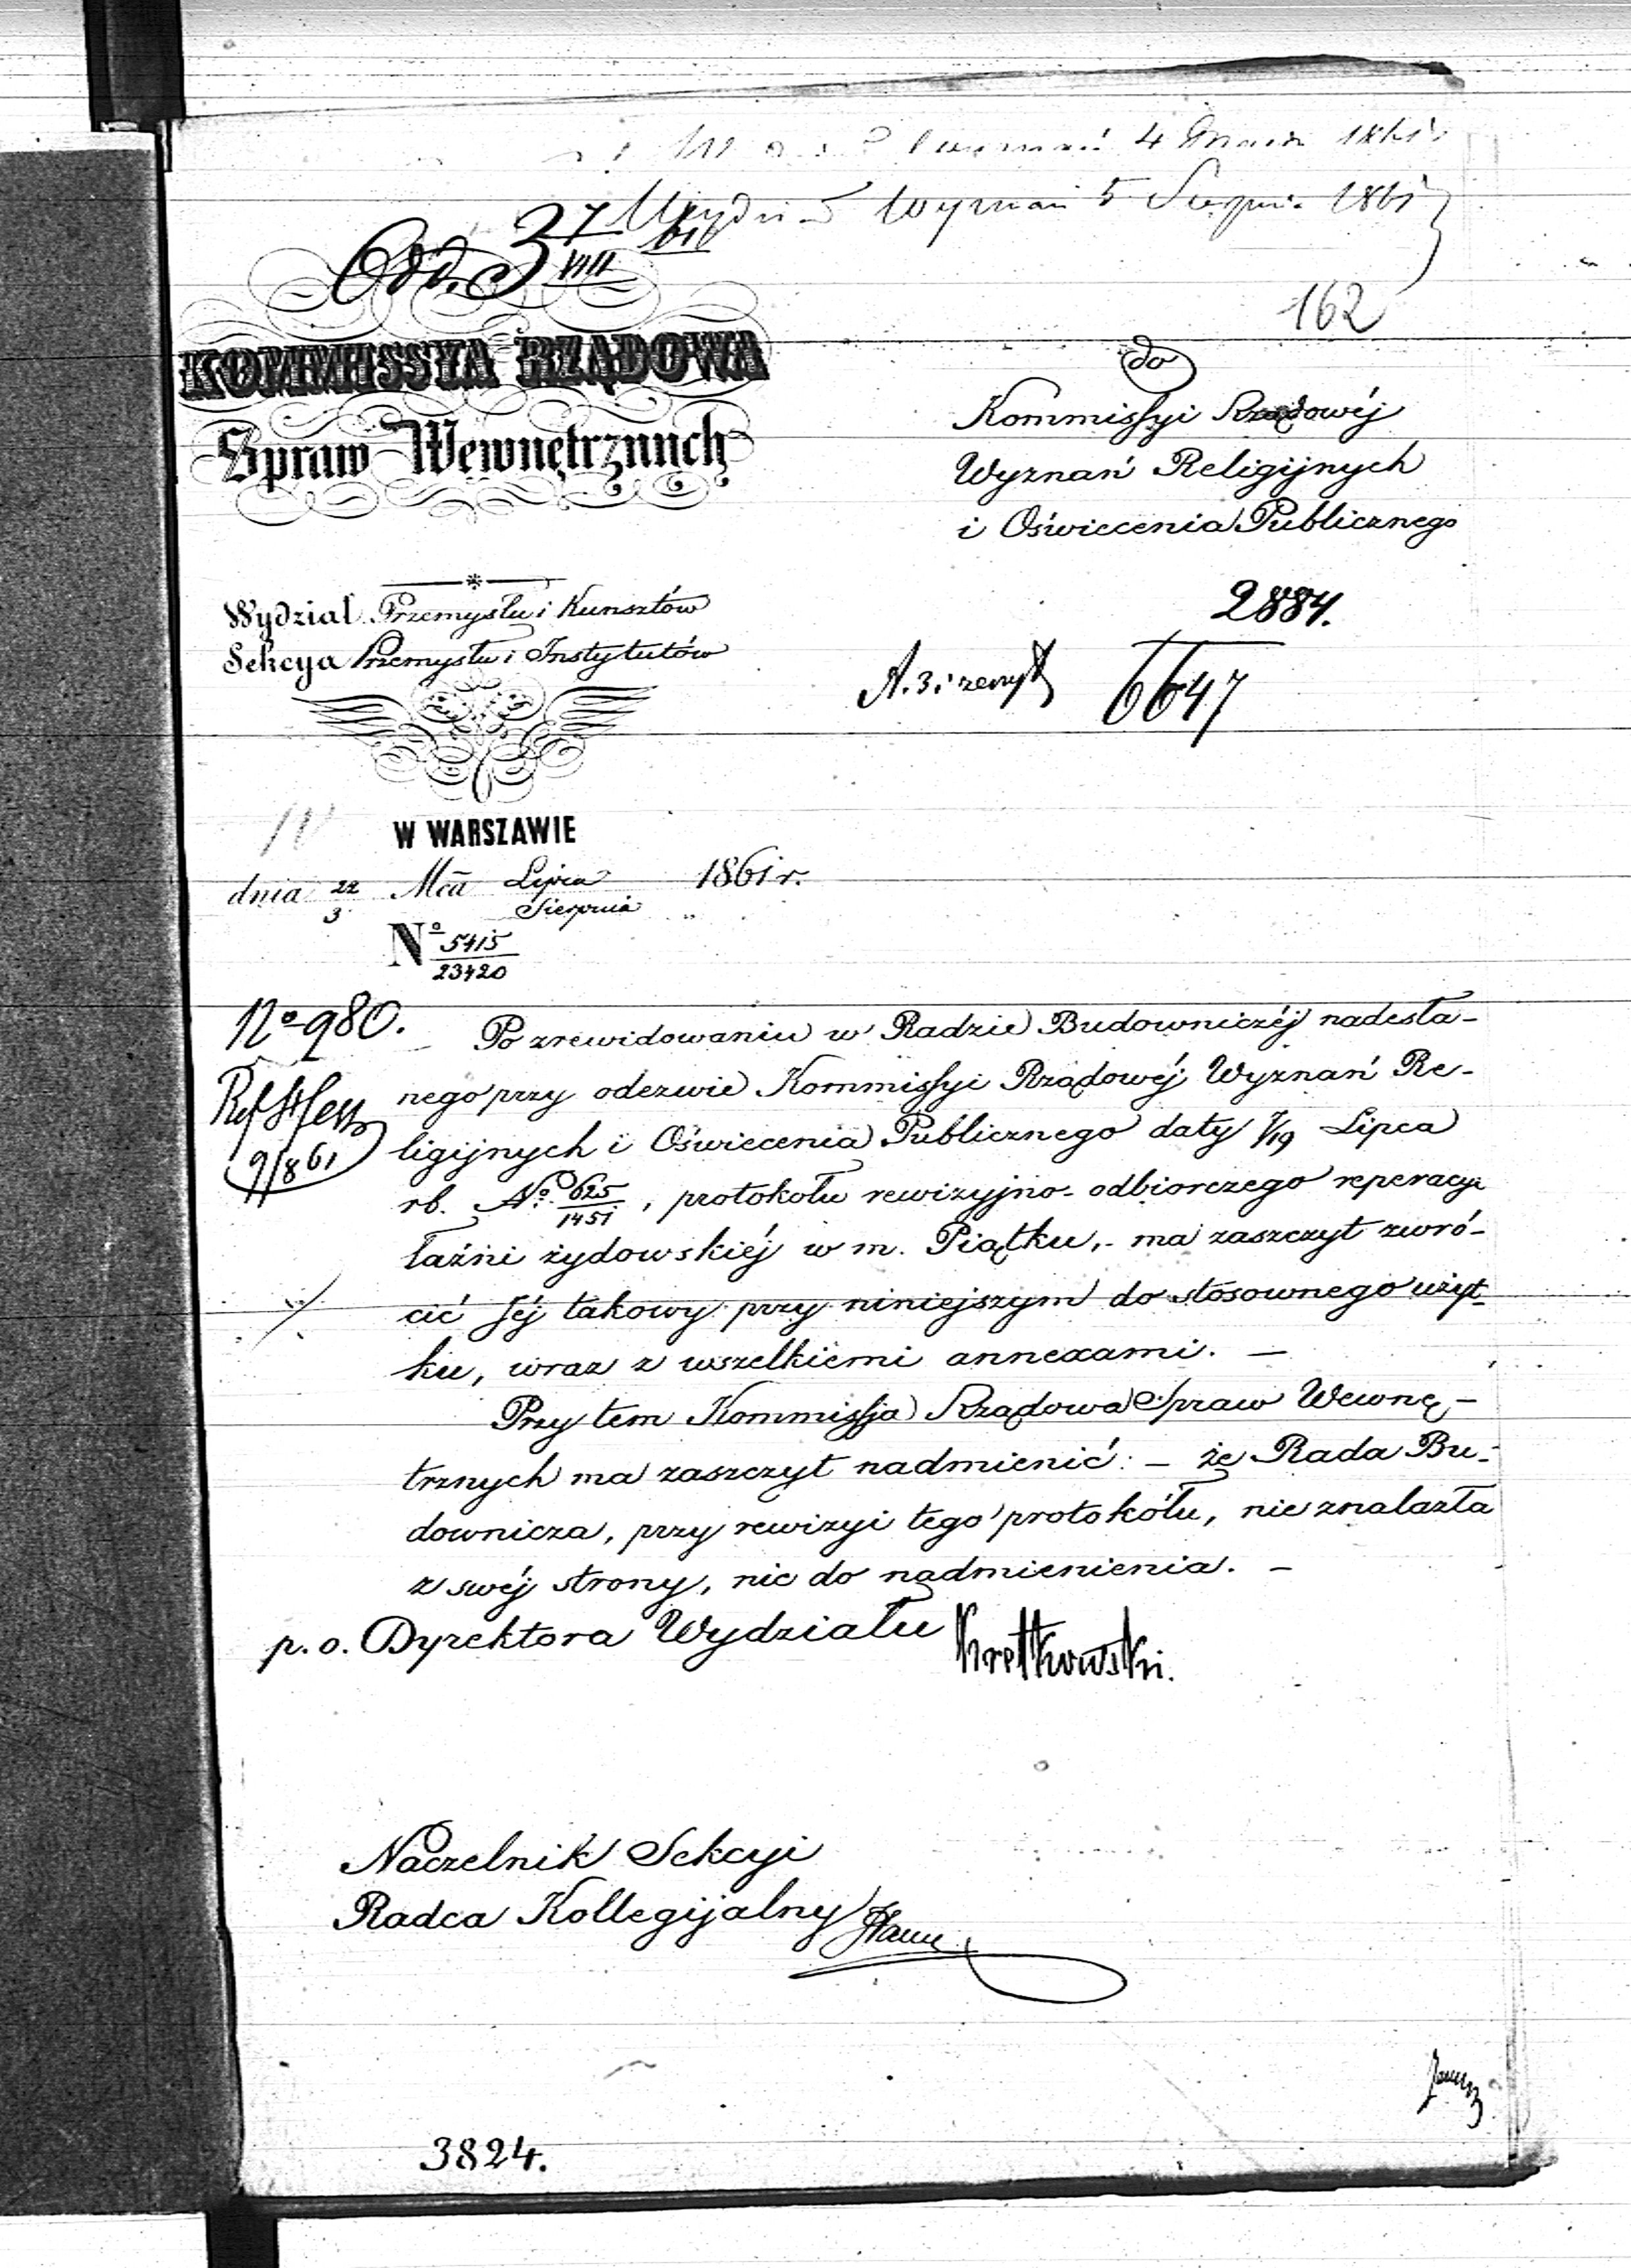 4 1861
Wydział Wyznań 5 Sierpnia 1861
Odd. 3 7/VIII 61
162
KOMMISSYA RZĄDOWA
Spraw Wewnętrznych
do
Kommissyi Rządowéj
Wyznań Religijnych
i Oświecenia Publicznego
Wydział Przemysłu i Kunsztów
Sekcya Przemysłu i Instytutów
2884.
A. 3
6647
W WARSZAWIE
dnia 22/3 Mca Lipca/Sierpnia 1861 r.
No 5415/23420
No 980.
9/8 61
Po zrewidowaniu w Radzie Budowniczéj nadesła-
nego przy odezwie Kommissyi Rządowéj Wyznań Re-
ligijnych i Oświecenia Publicznego daty 7/19 Lipca
rb. No. 625/1451, protokołu rewizyjno-odbiorczego reperacyi
łaźni żydowskiéj w m. Piątku,- ma zaszczyt zwró-
cić Jéj takowy przy niniejszym do stósownego użyt-
ku, wraz z wszelkiemi annexami. —
Przy tem Kommissja Rządowa Spraw Wewnę-
trznych ma zaszczyt nadmienić: — że Rada Bu-
downicza, przy rewizyi tego protokółu, nie znalazła
z swéj strony, nic do nadmienienia. —
p. o. Dyrektora Wydziału Kretkowski.
Naczelnik Sekcyi
Radca Kollegijalny
3824.